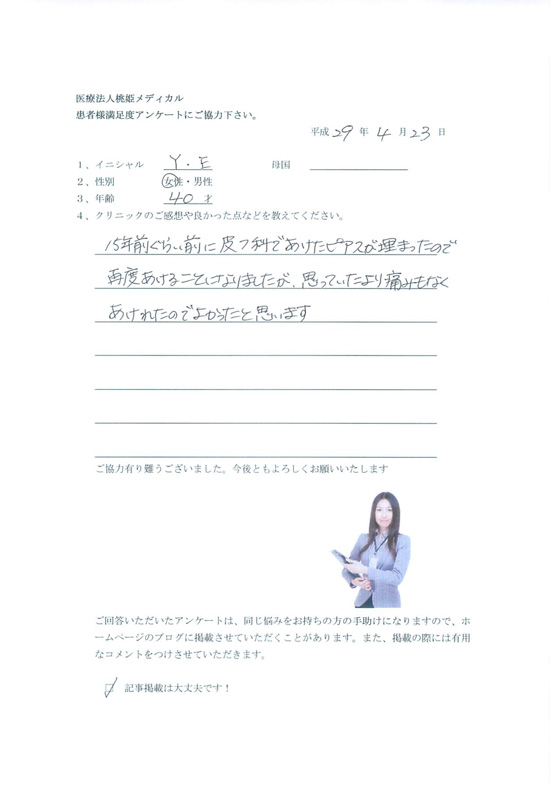 医療法人桃姫メディカル
患者様満足度アンケートにご協力下さい。
平成 29 年 4 月 23 日
1、イニシャル Y・E 母国
2、性別 女性・男性
3、年齢 40 才
4、クリニックのご感想や良かった点などを教えてください。
15年前ぐらい前に皮フ科であけたピアスが埋まったので
再度あけることになりましたが、思っていたより痛みもなく
あけれたのでよかったと思います
ご協力有り難うございました。今後ともよろしくお願いいたします
ご回答いただいたアンケートは、同じ悩みをお持ちの方の手助けになりますので、ホ
ームページのブログに掲載させていただくことがあります。また、掲載の際には有用
なコメントをつけさせていただきます。
記事掲載は大丈夫です！